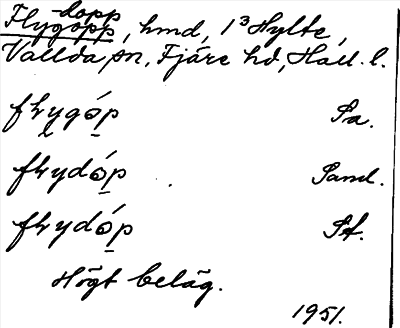 -dopp
Flygopp, hmd, 1³ Hylte,
Vallda sn, Fjäre hd, Hall. l.
flygóp Sa.
flydóp Sand.
flydóp Sf.
Högt beläg.
1951.